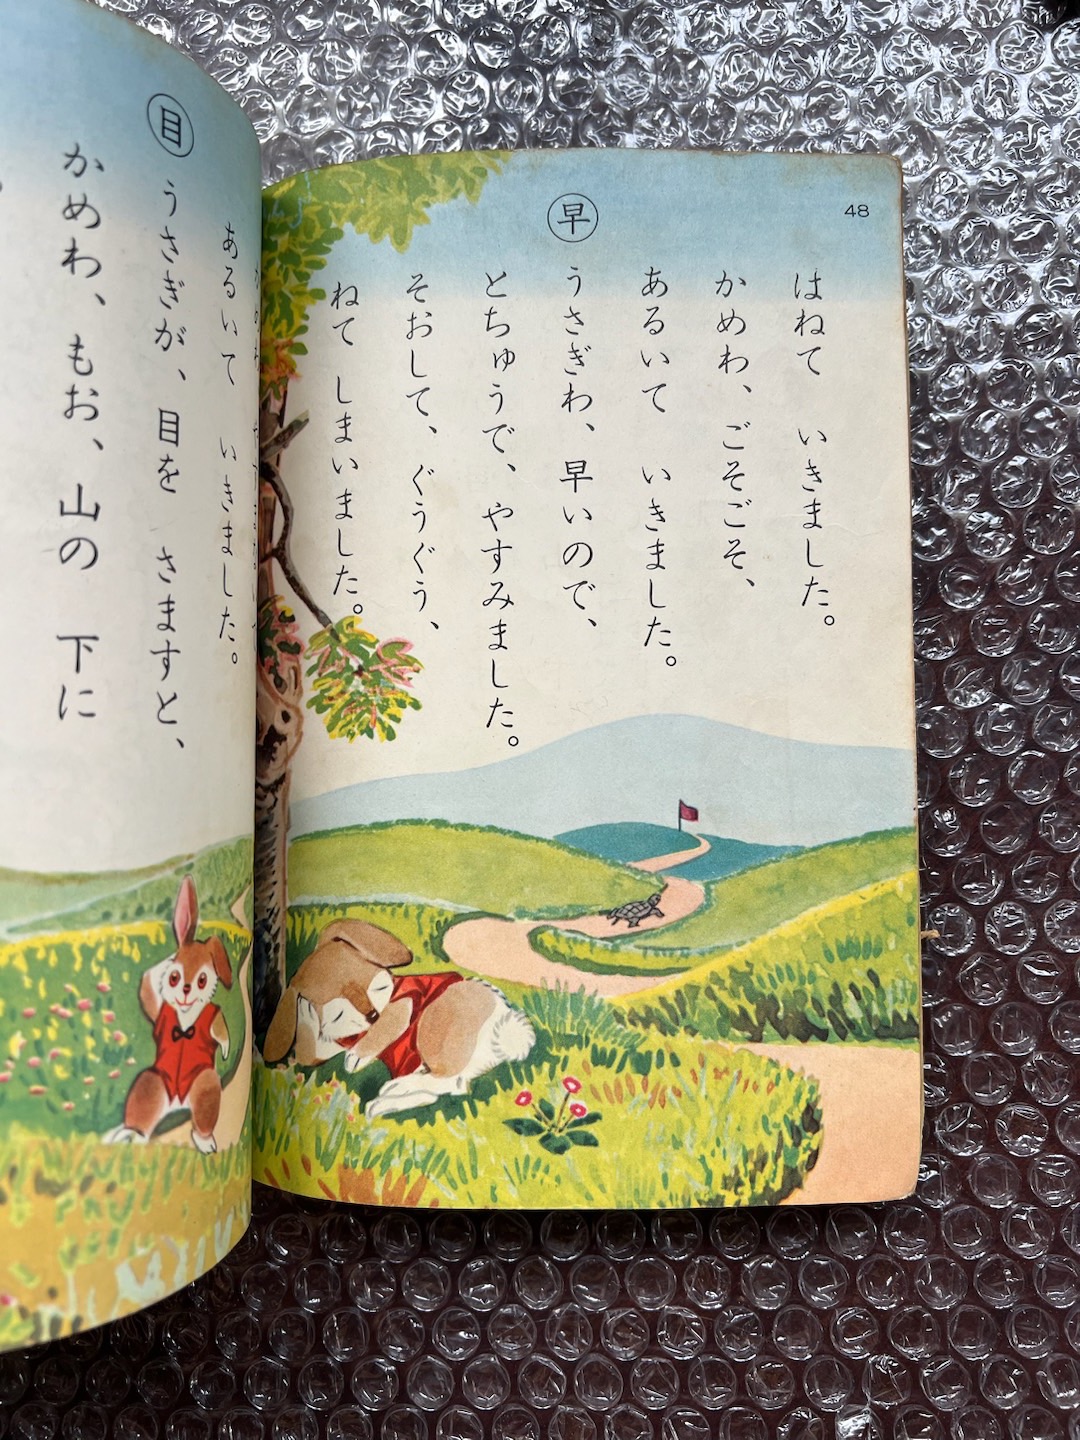 48
はねて いきました。
かめわ、ごそごそ、
あるいて いきました。
早
うさぎわ、早いので、
とちゅうで、やすみました。
そおして、ぐうぐう、
ねて しまいました。
あるいて いきました。
目
うさぎが、目を さますと、
かめわ、もお、山の 下に